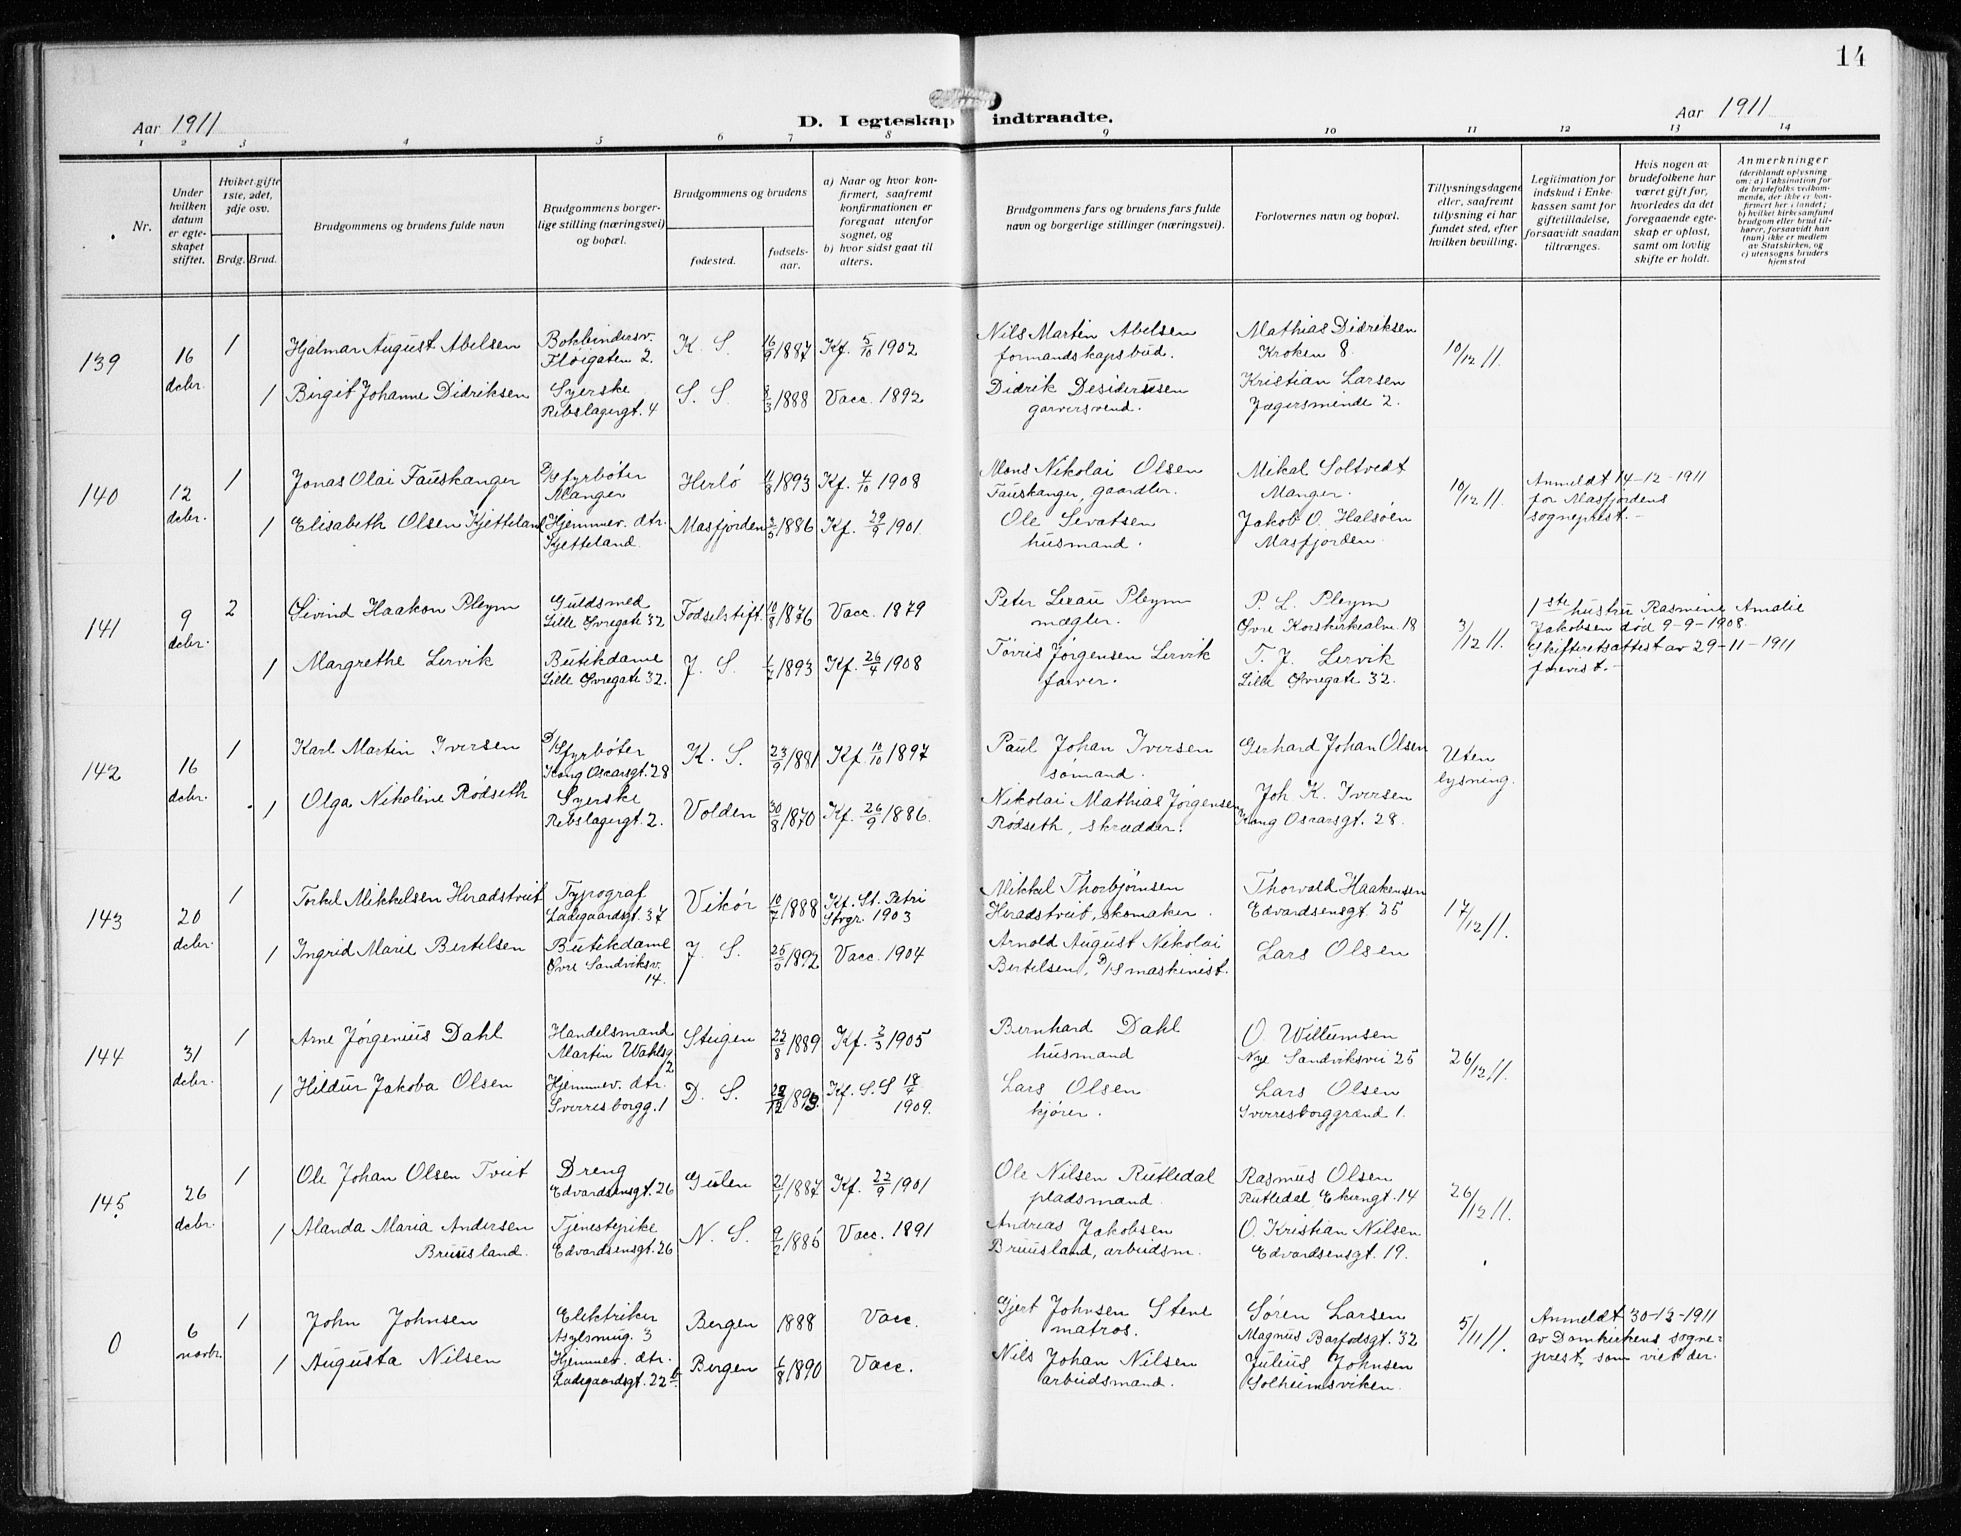 14
Aar 1911
D. I egteskap indtraadte.
Aar 1911
1 2 3 4 5 6 7 8 9 10 11 12 13 14
Nr.
Under hvilken datum er egteskapet stiftet.
Hvilket gifte 1ste, 2det, 3dje osv.
Brdg. Brud.
Brudgommens og brudens fulde navn
Brudgommens borgerlige stilling (næringsvei) og bopæl.
Brudgommens og brudens
fødested.
fødselsaar.
a) Naar og hvor konfirmert, saafremt konfirmationen er foregaat utenfor sognet, og
b) hvor sidst gaat til alters.
Brudgommens fars og brudens fars fulde navn og borgerlige stillinger (næringsvei).
Forlovernes navn og bopæl.
Tillysningsdagene eller, saafremt tillysning ei har fundet sted, efter hvilken bevilling.
Legitimation for indskud i Enkekassen samt for giftetilladelse, forsaavidt saadan tiltrænges.
Hvis nogen av brudefolkene har været gift før, hvorledes da det foregaaende egteskap er opløst, samt om lovlig skifte er holdt.
Anmerkninger
(deriblandt oplysning om: a) Vaksination for de brudefolks vedkommende, der ikke er konfirmert her i landet; b) hvilket kirkesamfund brudgom eller brud tilhører, forsaavidt han (hun) ikke er medlem av Statskirken, og c) utensogns bruders hjemsted
139 16 dcbr. 1 Hjalmar August Abelsen Bokbindersv. Fløigaten 2. K. S. 16/9 1887 Kf. 5/10 1902 Nils Martin Abelsen formandskapsbud. Mathias Didriksen Kroken 8. 10/12 11.
1 Birgit Johanne Didriksen Syerske Rebslagergt. 4 S. S. 8/3 1888 Vacc. 1892 Didrik Desideriusen garversvend. Kristian Larsen Jægersminde 2.
140 12 dcbr. 1 Jonas Olai Fauskanger D/S fyrbøter Manger Herlö 11/8 1893 Kf. 4/10 1908 Mons Nikolai Olsen Fauskanger, gaardbr. Mikal Soltvedt Manger. 10/12 11. Anmeldt 14-12-1911 for Masfjordens sogneprest.
1 Elisabeth Olsen Kjetteland Hjemmev. dtr. Kjetteland. Masfjorden 2/5 1886 Kf. 29/9 1901. Ole Sevatsen husmand. Jakob O. Halsøen Masfjorden
141 9 dcbr. 2 Eivind Haakon Pleym Guldsmed Lille Øvregate 32 Fodselstift. 10/8 1876 Vacc. 1879 Peter Leeau Pleym mægler. P. L. Pleym Øvre Korskirkealm. 18 3/12 11. 1ste hustru Rasmine Amalie Jakobsen død 9-9-1908. Skifteretsattest av 29-11-1911 forevist.
1 Margrethe Lervik Butikdame Lille Øvregate 32. J. S. 1/7 1893 Kf. 26/4 1908 Tørris Jørgensen Lervik farver. T. J. Lervik Lille Øvregate 32.
142 16 dcbr. 1 Karl Martin Iversen D/S fyrbøter Kong Oscarsgt. 28 K. S. 23/9 1881 Kf. 10/10 1897 Paul Johan Iversen sømand. Gerhard Johan Olsen Uten lysning.
1 Olga Nikoline Rødseth Syerske Rebslagergt. 2. Volden 30/8 1870 Kf. 26/9 1886. Nikolai Mathias Jørgensen Rødseth, skrædder. Joh. K. Iversen Kong Oscarsgt. 28.
143 20 dcbr. 1 Torkel Mikkelsen Heradstveit Typograf Ladegaardsgt. 37 Vikør 10/7 1888 Kf. St. Petri Stvgr. 1903 Mikkel Thorbjørnsen Heradstveit, skomaker. Thorvald Haakensen Edvardsensgt. 25 17/12 11.
1 Ingrid Marie Bertelsen Butikdame Øvre Sandviksv. 14. J. S. 25/5 1892 Vacc. 1904 Arnold August Nikolai Bertelsen, D/S maskinist. Lars Olsen
144 31 dcbr. 1 Arne Jørgenius Dahl Handelsmand Martin Wahlsg 2 Steigen 22/8 1889 Kf. 2/3 1905 Bernhard Dahl husmand O. Willumsen Nye Sandviksvei 25 26/12 11.
1 Hildur Jakoba Olsen Hjemmev. dtr. Sverresborgg. 1 D. S. 22/12 1893 Kf. S. S 18/4 1909. Lars Olsen kjører. Lars Olsen Sverresborggrænd 1.
145 26 dcbr. 1 Ole Johan Olsen Tveit Dreng Edvardsensgt. 26 Gulen 21/1 1887 Kf. 22/9 1901 Ole Nilsen Rutledal pladsmand. Rasmus Olsen Rutledal Ekrengt. 14 26/12 11.
1 Alanda Maria Andersen Bruusland. Tjenestepike Edvardsensgt. 26 N. S. 9/2 1885 Vacc. 1891 Andreas Jakobsen Bruusland, arbeidsm. O. Kristian Nilsen Edvardsensgt. 19.
0 6 novbr. 1 John Johnsen Elektriker Asylsmug. 3 Bergen 1888 Vacc. Gjert Johnsen Stene matros. Søren Larsen Magnus Barfodsgt. 32 5/11 11. Anmeldt 30-12-1911 av Domkirkens sogneprest, som viet der.
1 Augusta Nilsen Hjemmev. dtr. Ladegaardsgt. 22 b Bergen 1/8 1890 Vacc. Nils Johan Nilsen arbeidsmand. Julius Johnsen Solheimsviken.